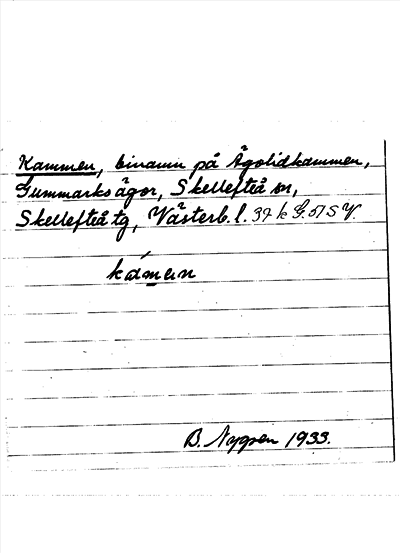 Kammen, binamn på Ågolidkammen,
Gummarks ägor, Skellefteå sn,
Skellefteå tg, Västerb. l. 37 k G. 51 S V.
B. Nygren 1933.